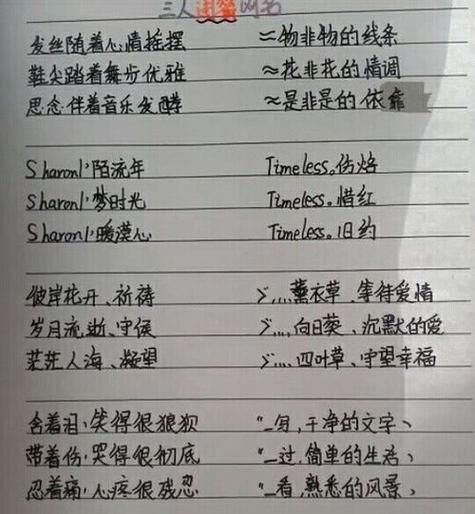 三人闺蜜网名
发丝随着心情摇摆 ≈物非物的线条
鞋尖踏着舞步优雅 ≈花非花的情调
思念伴着音乐发酵 ≈是非是的依靠
Sharonl丶陌流年 Timeless。伤烙
Sharonl丶梦时光 Timeless。惜红
Sharonl丶暖漠心 Timeless。旧约
彼岸花开、祈祷 ゞ....薰衣草、等待爱情
岁月流逝、守侯 ゞ....向日葵、沉默的爱
茫茫人海、凝望 ゞ....四叶草、守望幸福
含着泪,笑得很狼狈 “_写,干净的文字、
带着伤,哭得很彻底 “_过,简单的生活、
忍着痛,心疼很残忍 “_看,熟悉的风景、